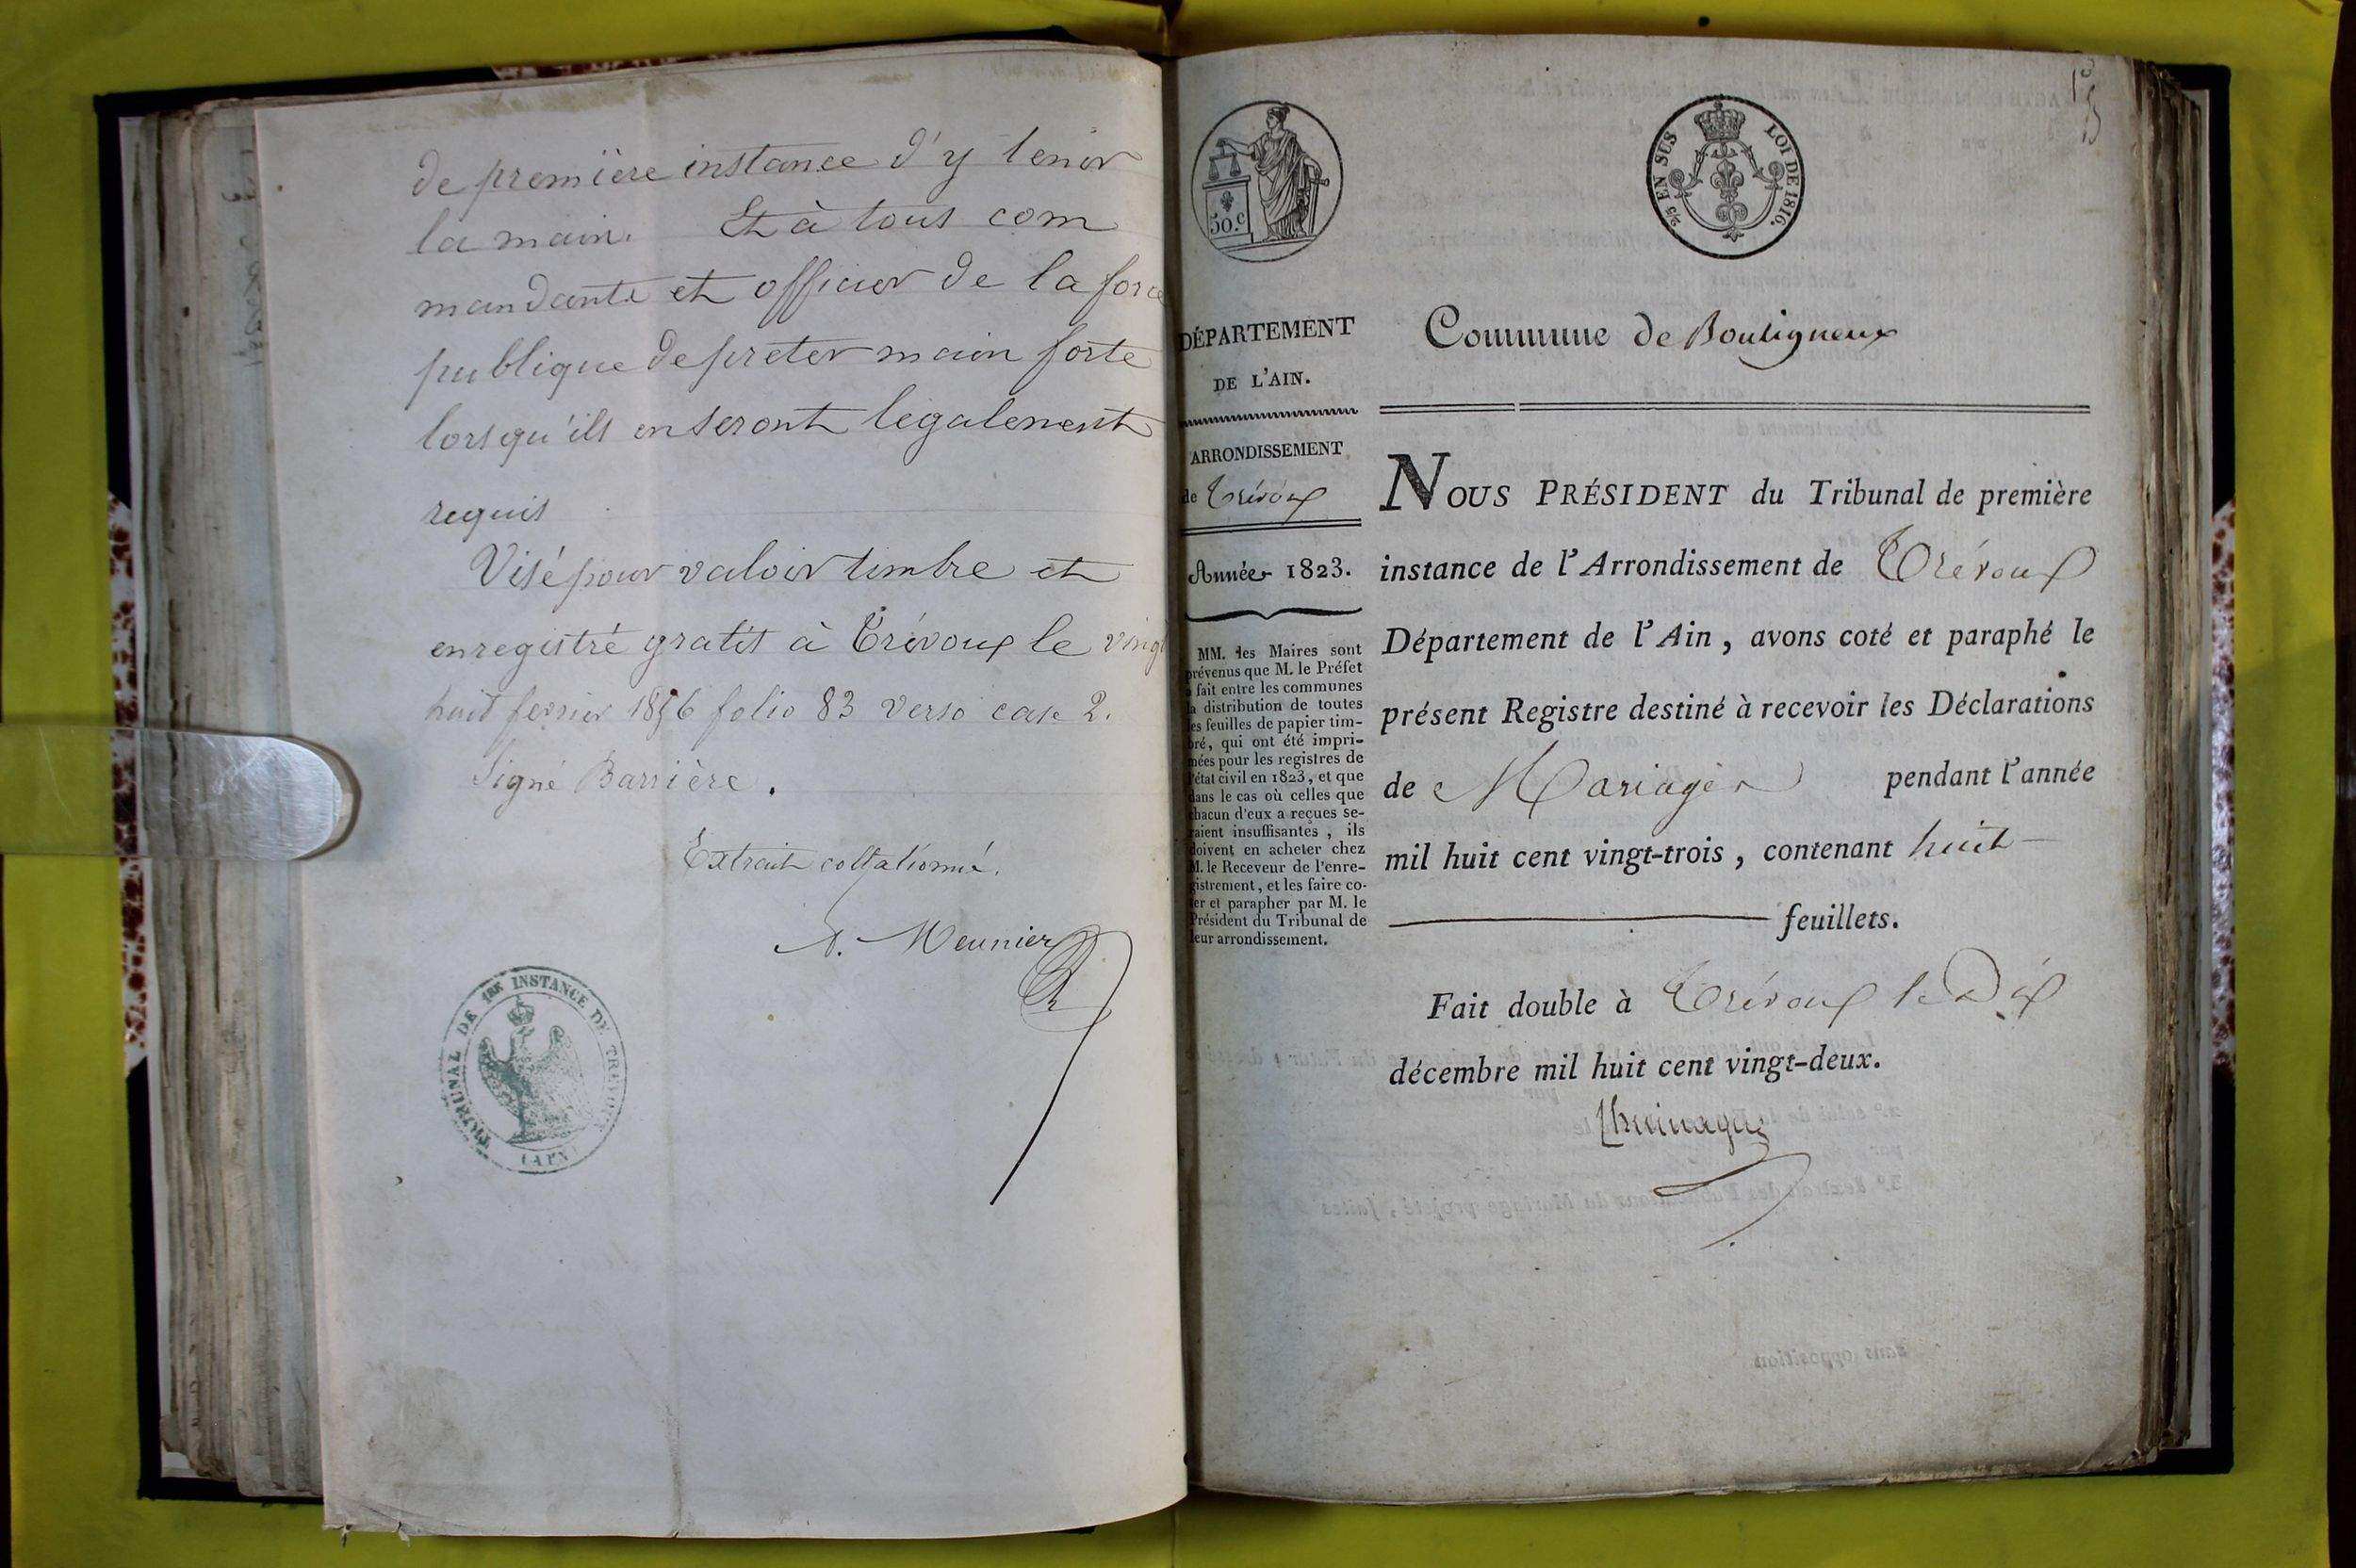 de première instance d'y tenir
la main. Et à tous com
mandants et officier de la force
publique de preter main forte
lorsqu'ils en seront légalement
requis
Visé pour valoir timbre et
enregistré gratis à Trévoux le vingt
huit fevrier 1856 folio 83 verso case 2.
Signé Barrière.
Extrait collationné.
A. Meunier
TRIBUNAL DE 1RE INSTANCE DE TREVOUX
(AIN)
50.c
2/5 EN SUS LOI DE 1816.
DÉPARTEMENT
DE L'AIN.
ARRONDISSEMENT
de Trévoux
Année 1823.
MM. les Maires sont
prévenus que M. le Préfet
a fait entre les communes
la distribution de toutes
les feuilles de papier tim-
bré, qui ont été impri-
mées pour les registres de
l'état civil en 1823, et que
dans le cas où celles que
chacun d'eux a reçues se-
raient insuffisantes, ils
doivent en acheter chez
M. le Receveur de l'enre-
gistrement, et les faire co-
ter et parapher par M. le
Président du Tribunal de
leur arrondissement.
Commune de Bouligneux
NOUS PRÉSIDENT du Tribunal de première
instance de l'Arrondissement de Trévoux
Département de l'Ain, avons coté et paraphé le
présent Registre destiné à recevoir les Déclarations
de Mariages pendant l'année
mil huit cent vingt-trois, contenant huit
feuillets.
Fait double à Trévoux le Dix
décembre mil huit cent vingt-deux.